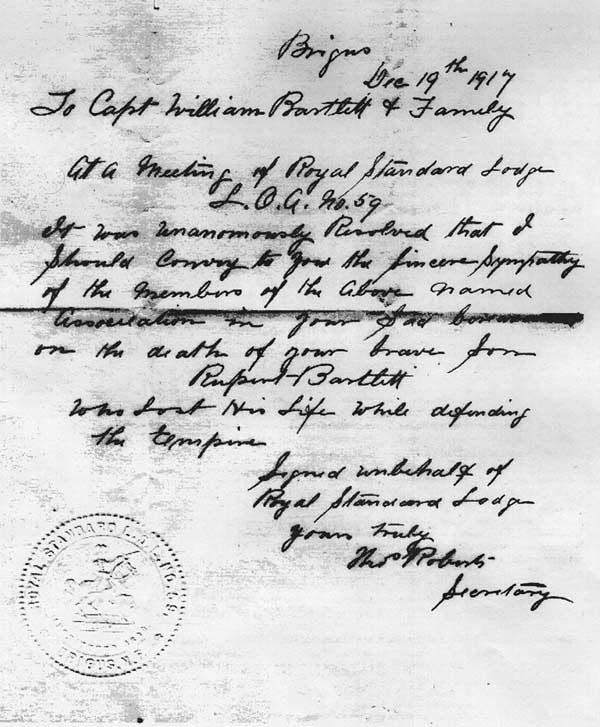 Brigus
Dec 19th 1917
To Capt William Bartlett & Family
At a Meeting of Royal Standard Lodge
L.O.A. No. 59
It was unanomously Resolved that I
Should Convey to you the Sincere Sympathy
of the Members of the Above named
Association in your Sad
on the death of your brave Son
Rupert Bartlett
who Lost His Life while defending
the Empire
Signed unbehalf of
Royal Standard Lodge
yours truly
Thos Roberts
Secretary
ROYAL STANDARD
BRIGUS, N.F.